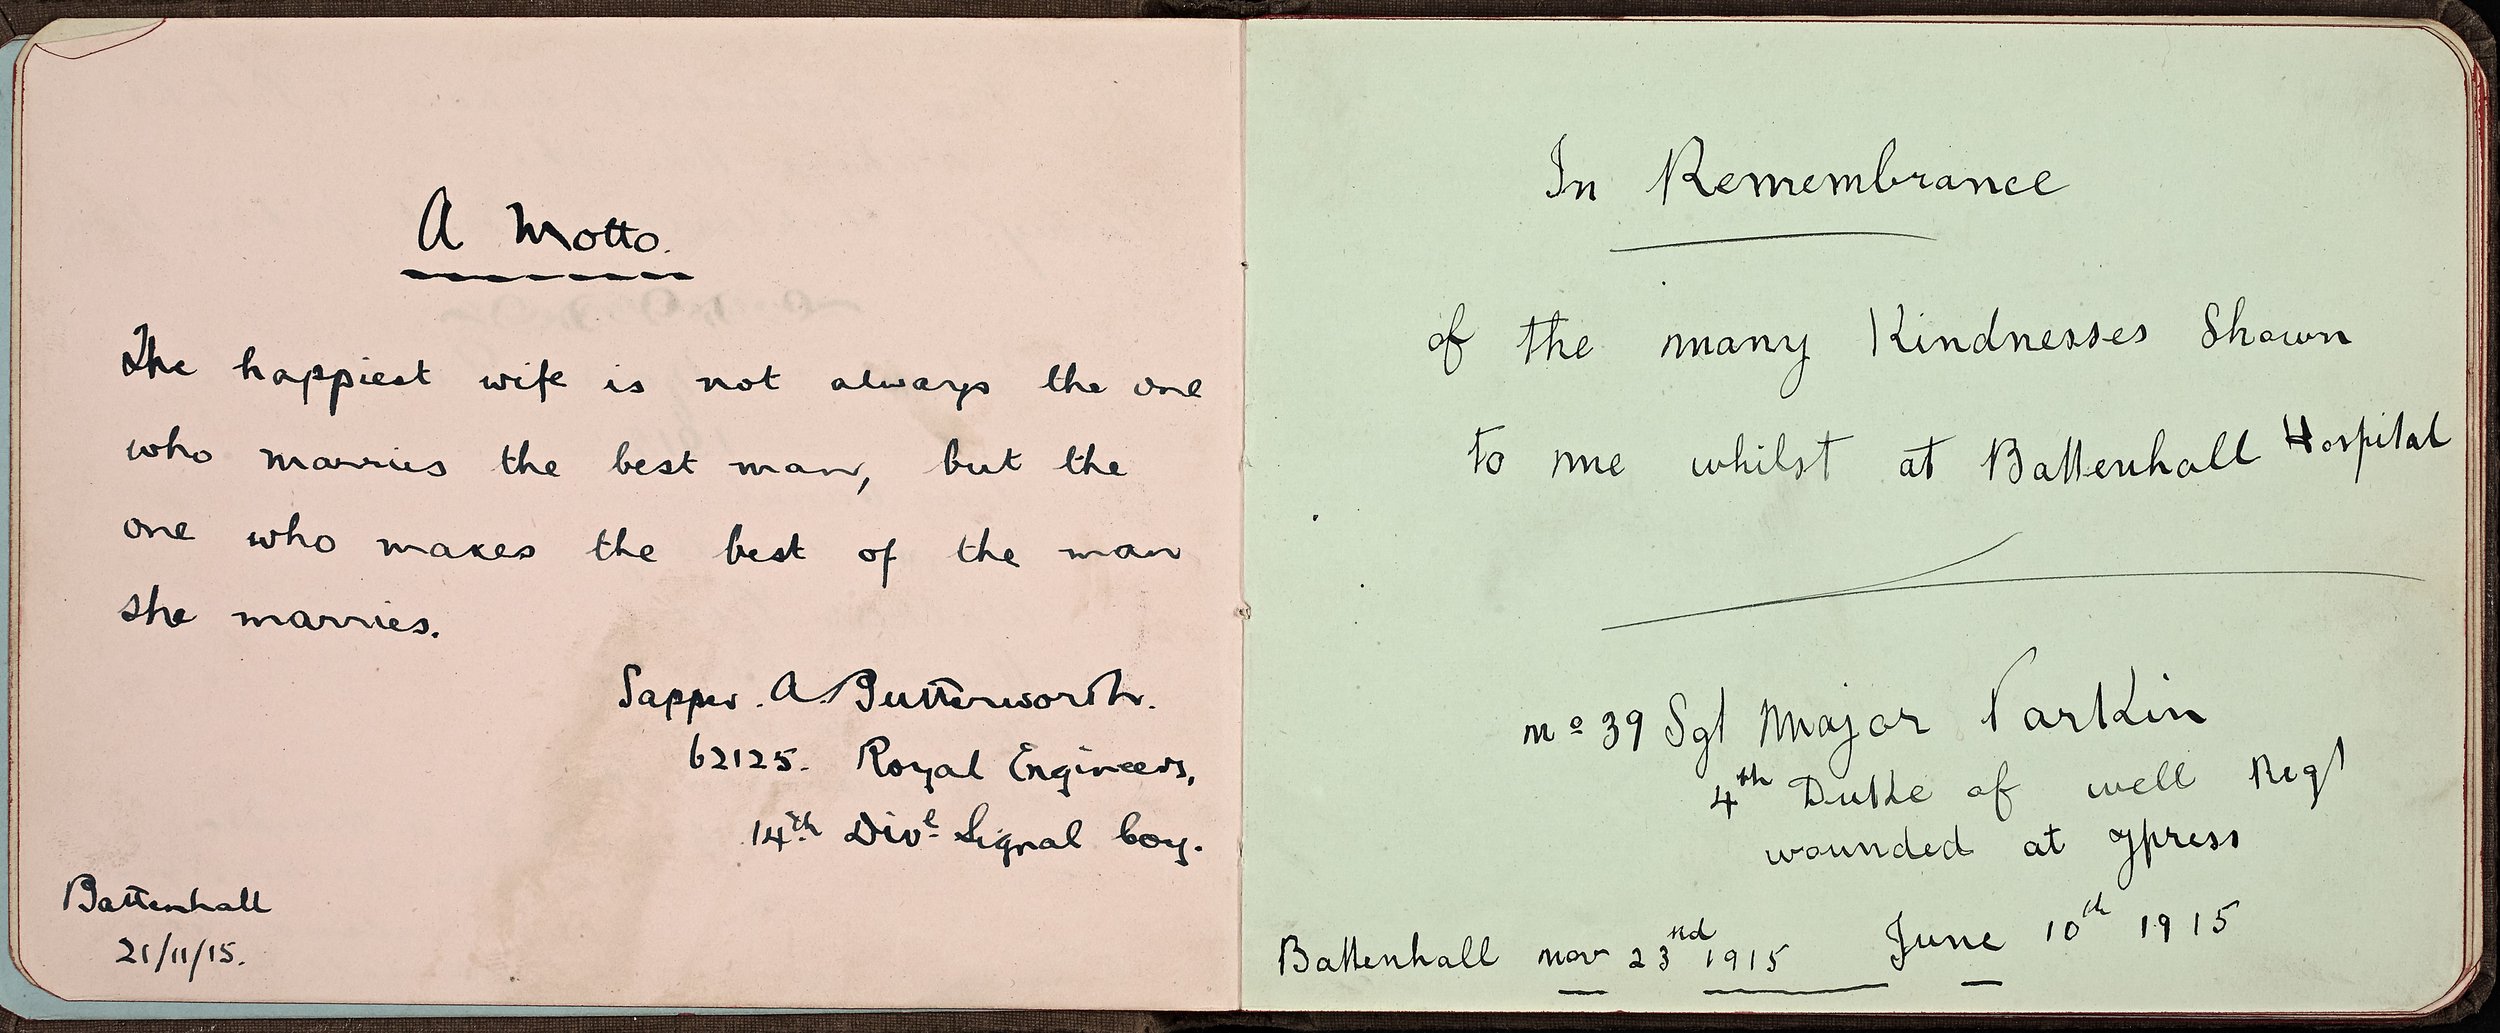 A Motto.
The happiest wife is not always the one
who marries the best man, but the
one who makes the best of the man
she marries.
Sapper. A. Butterworth.
62125. Royal Engineers,
14th Divl Signal Coy.
Battenhall
21/11/15.
In Remembrance
of the many Kindnesses Shown
to me whilst at Battenhall Hospital
no 39 Sgt Major Parkin
4th Duke of well Regt
wounded at ypress
June 10th 1915
Battenhall nov 23nd 1915